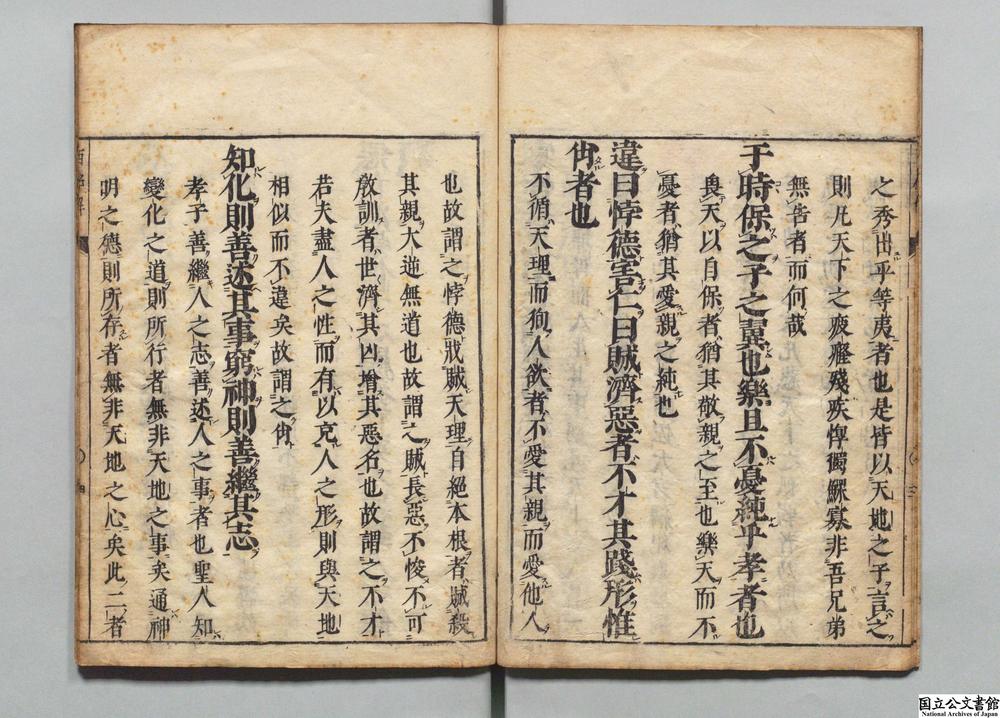 之秀出乎等夷者也是皆以天地之子言之
則凡天下之疲癃殘疾惸獨鰥寡非吾兄弟
無告者而何哉
于時保之子之翼也樂且不憂純乎孝者也
畏天以自保者猶其敬親之至也樂天而不
憂者猶其愛親之純也
違曰悖德害仁曰賊濟惡者不才其踐形惟
肖者也
不循天理而徇人欲者不愛其親而愛他人
也故謂之悖德戕賊天理自絕本根者賊殺
其親大逆無道也故謂之賊長惡不悛不可
敎訓者世濟其凶增其惡名也故謂之不才
若夫盡人之性而有以克人之形則與天地
相似而不違矣故謂之肖
知化則善述其事窮神則善繼其志
孝子善繼人之志善述人之事者也聖人知
變化之道則所行者無非天地之事矣通神
明之德則所存者無非天地之心矣此二者
西銘解
四
三
国立公文書館
National Archives of Japan